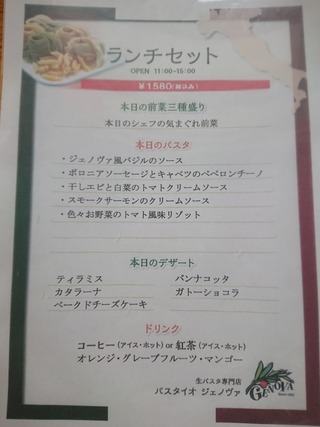 ランチセット
OPEN 11:00-15:00
¥1580(税込み)
本日の前菜三種盛り
本日のシェフの気まぐれ前菜
本日のパスタ
・ジェノヴァ風バジルのソース
・ボロニアソーセージとキャベツのペペロンチーノ
・干しエビと白菜のトマトクリームソース
・スモークサーモンのクリームソース
・色々お野菜のトマト風味リゾット
本日のデザート
ティラミス パンナコッタ
カタラーナ ガトーショコラ
ベークドチーズケーキ
ドリンク
コーヒー(アイス・ホット) or 紅茶(アイス・ホット)
オレンジ・グレープフルーツ・マンゴー
生パスタ専門店
パスタイオ ジェノヴァ
GENOVA